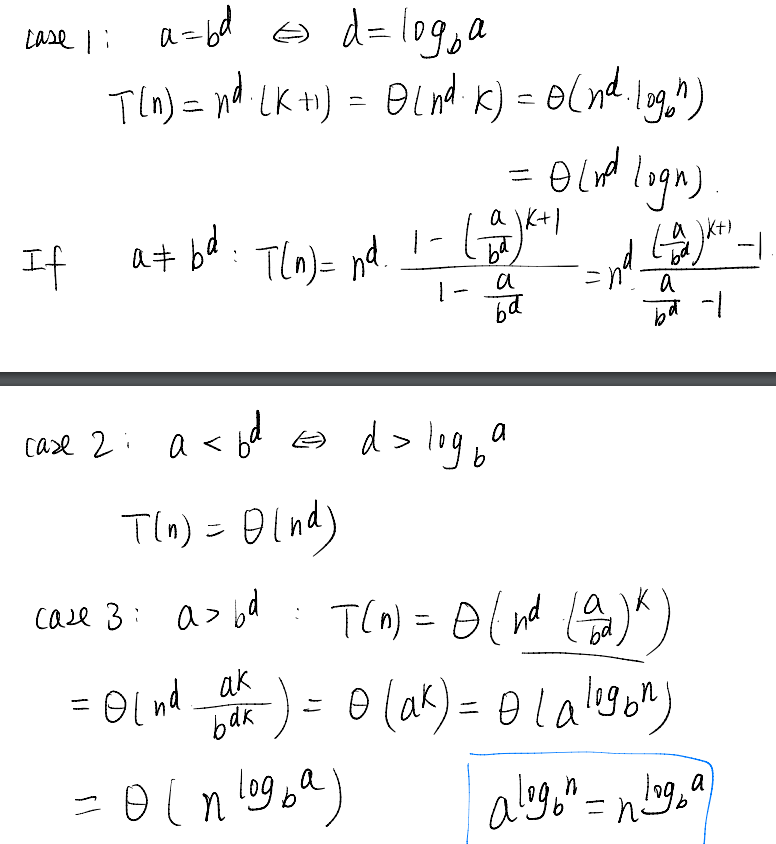 case 1: a=b^d ⇔ d=log_b a
T(n) = n^d·(K+1) = Θ(n^d·K) = Θ(n^d·log_b n)
= Θ(n^d logn).
If a≠b^d: T(n)= n^d · (1-(a/b^d)^{K+1})/(1-a/b^d) = n^d ((a/b^d)^{K+1}-1)/(a/b^d -1)
case 2: a < b^d ⇔ d > log_b a
T(n) = Θ(n^d)
case 3: a > b^d : T(n) = Θ(n^d (a/b^d)^K)
= Θ(n^d a^K/b^{dK}) = Θ(a^K) = Θ(a^{log_b n})
= Θ(n^{log_b a})
a^{log_b n} = n^{log_b a}